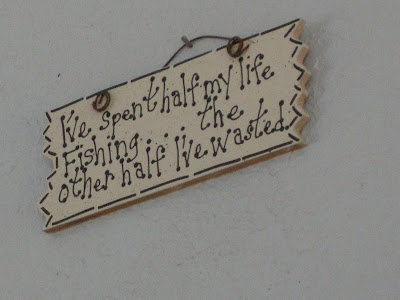 I've spent half my life
Fishing... the
other half I've wasted.